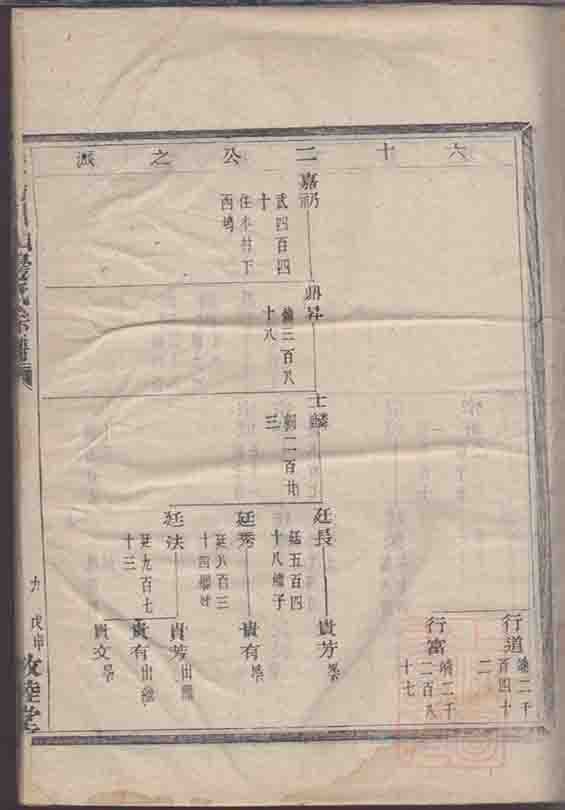 六十二公之派
嘉礽
武四百四
十
住木村下
西塢
鼎昇
三百八
十八
士麟
二百廿
三
廷長
廷五百四
十八繼子
廷秀
廷八百三
十四
廷法
廷九百七
十三
貴芳
貴有
貴芳
出繼
貴有
出繼
貴文
行道
二千
百四十
二
行富
二千
二百八
十七
九
戊申
敦睦堂